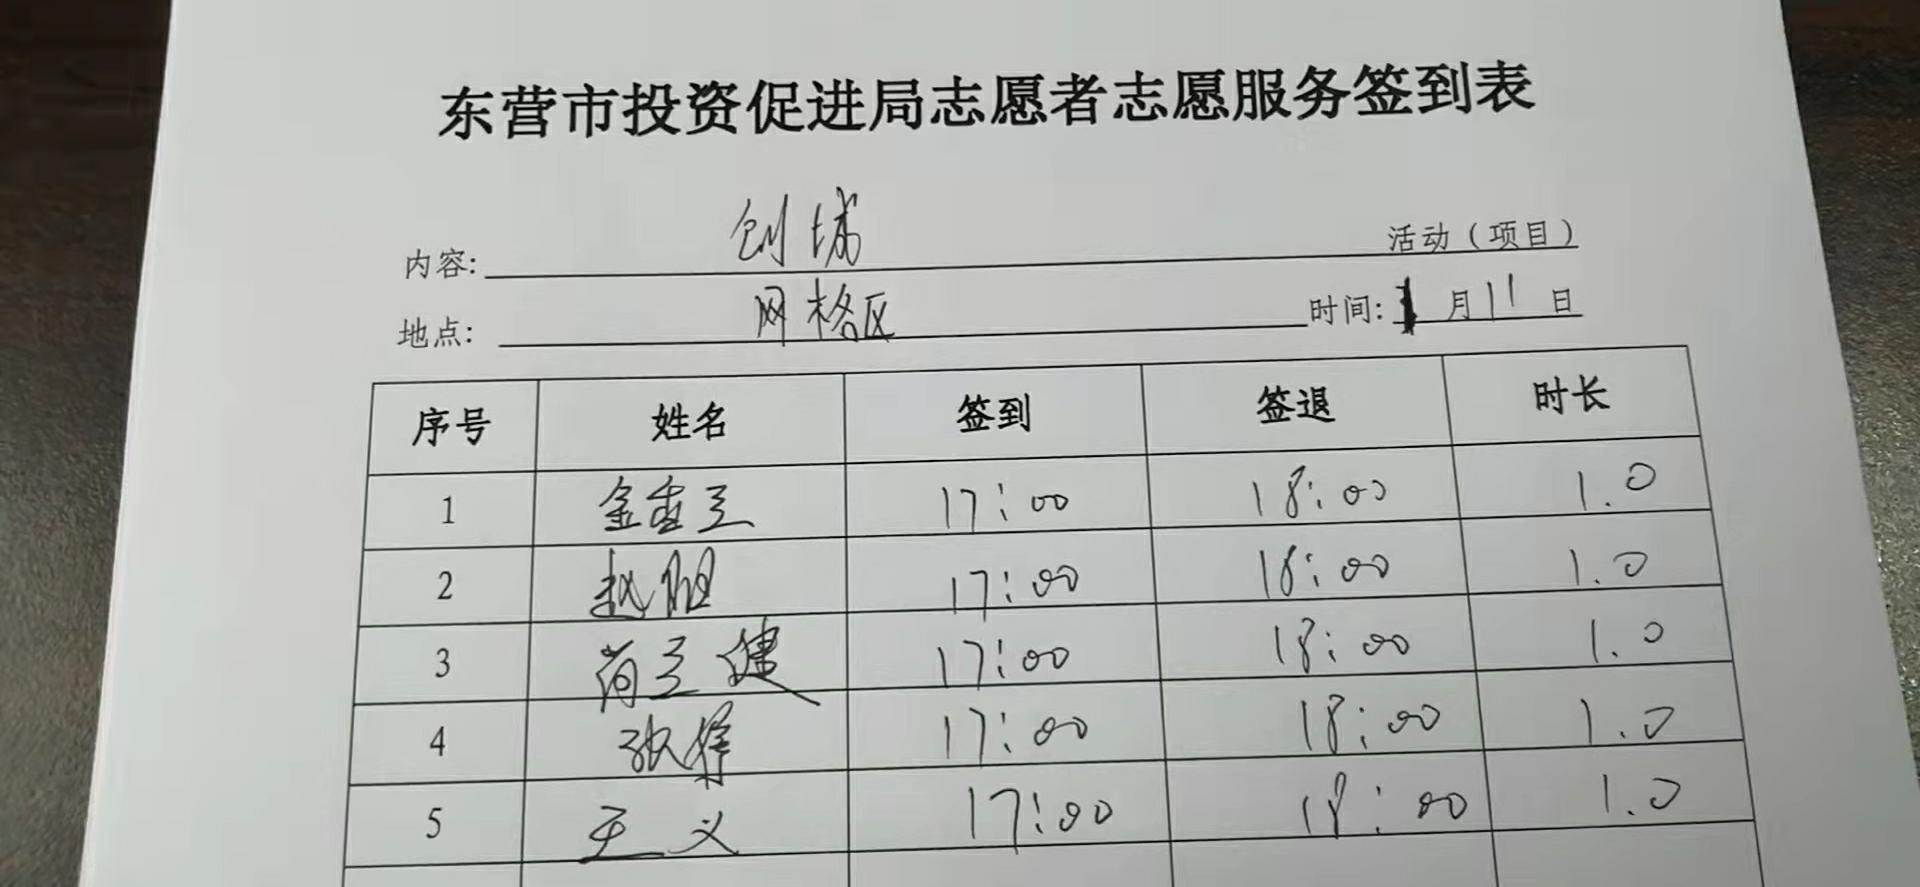 东营市投资促进局志愿者志愿服务签到表
内容: 创城 活动（项目）
地点: 网格区 时间: 月11日
序号 姓名 签到 签退 时长
1 17:00 18:00 1.0
2 赵阳 17:00 18:00 1.0
3 17:00 18:00 1.0
4 17:00 18:00 1.0
5 王义 17:00 18:00 1.0